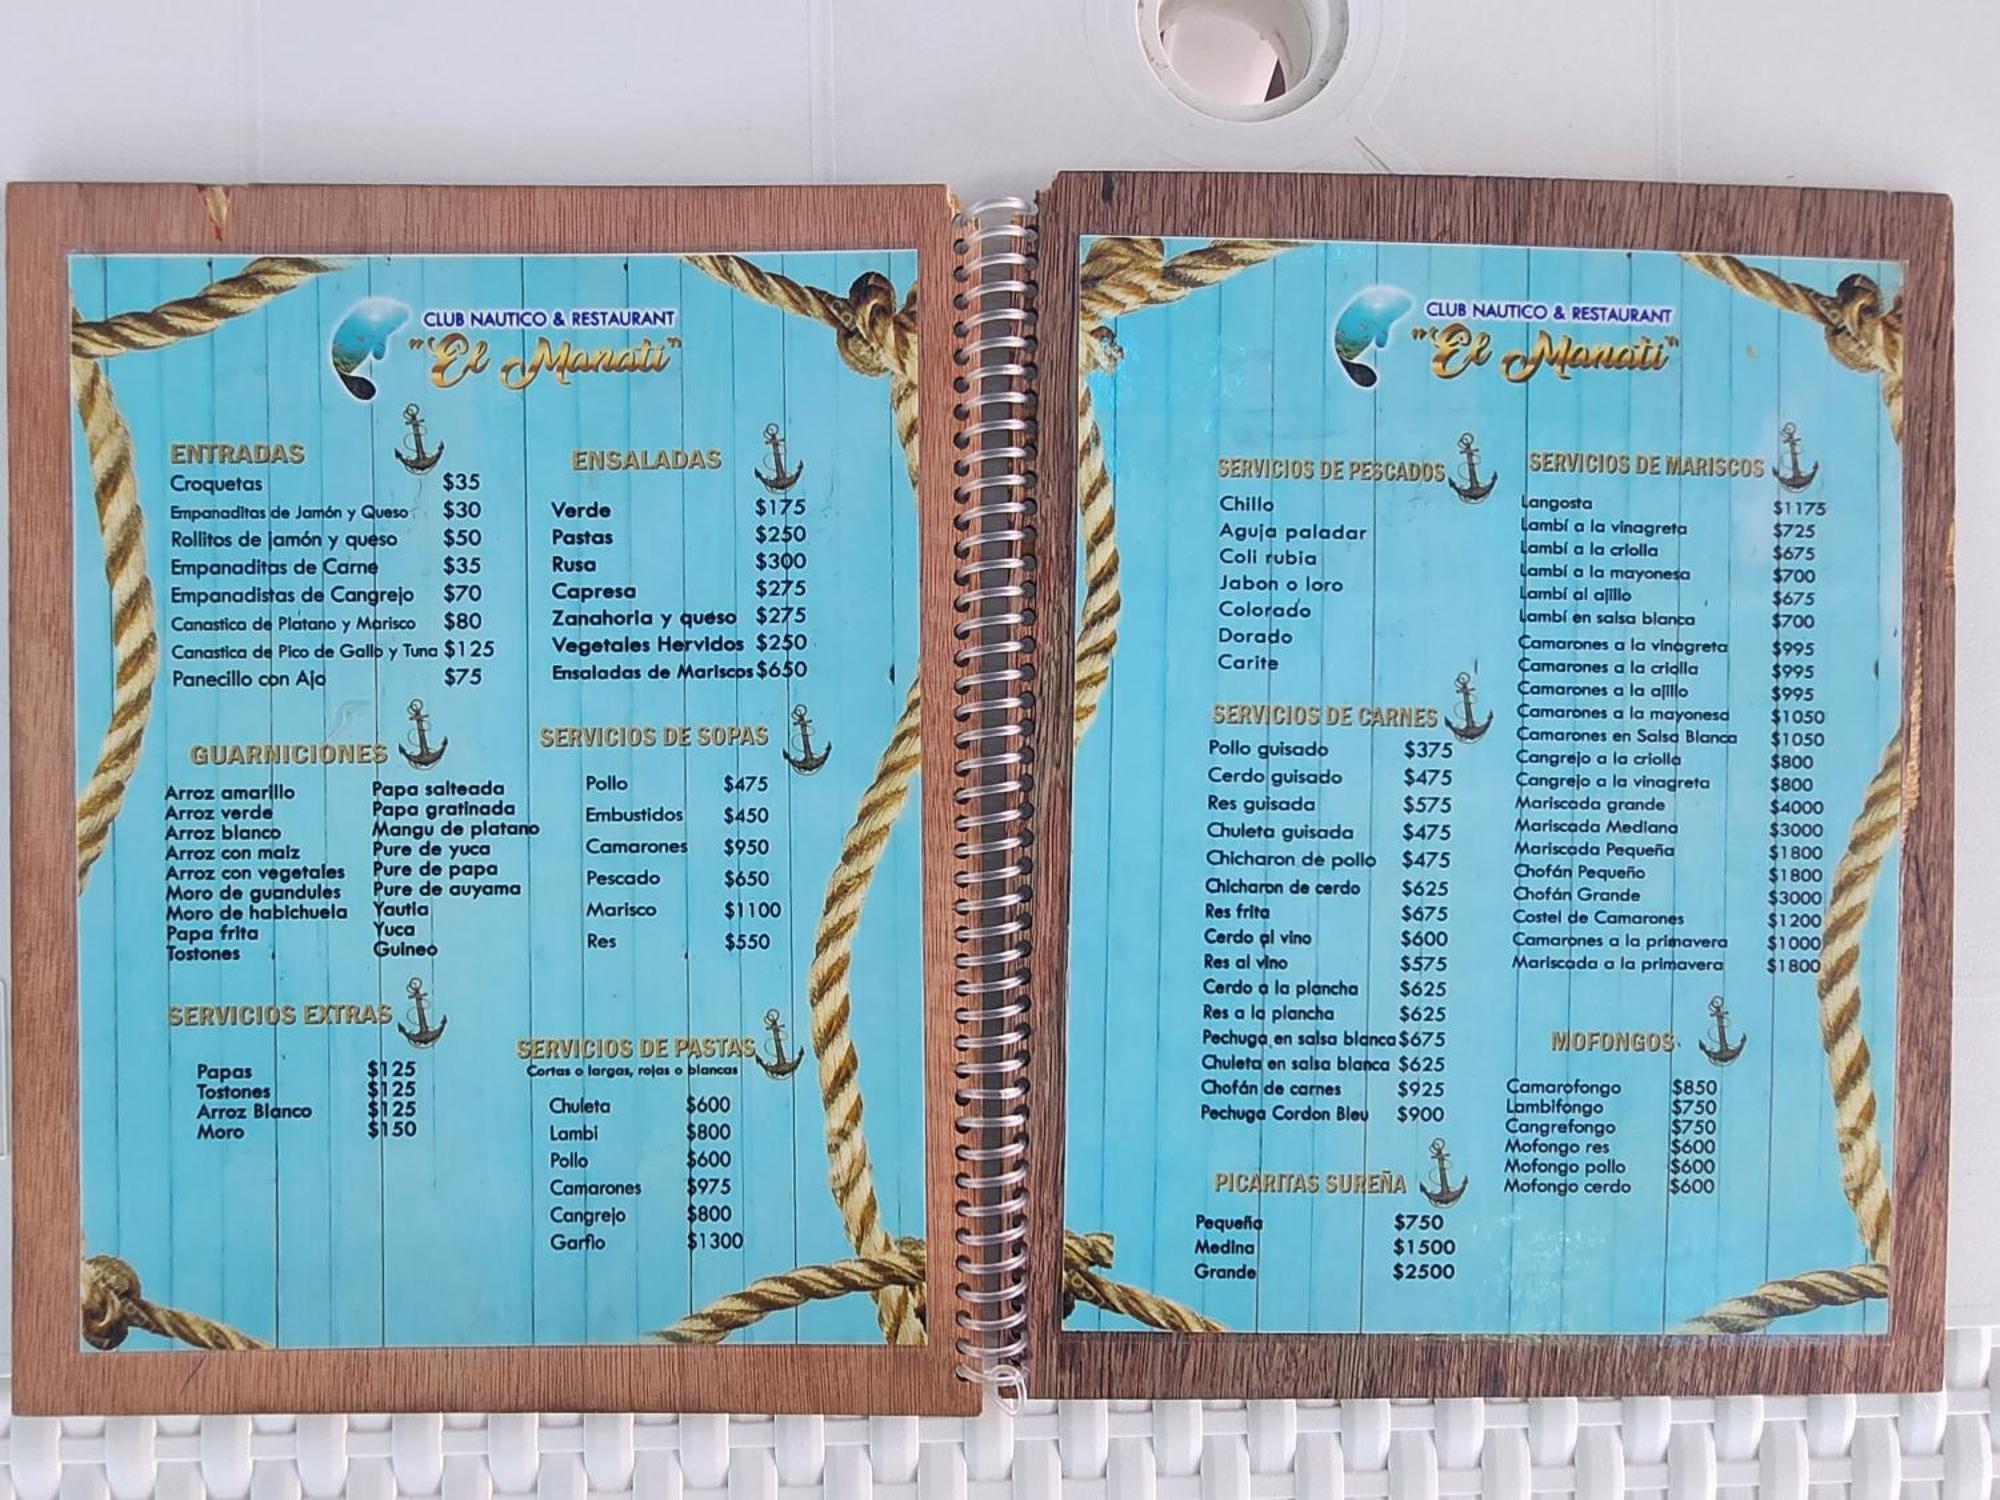 CLUB NAUTICO & RESTAURANT
"El Manati"
ENTRADAS
Croquetas $35
Empanaditas de Jamón y Queso $30
Rollitos de jamón y queso $50
Empanaditas de Carne $35
Empanadistas de Cangrejo $70
Canastica de Platano y Marisco $80
Canastica de Pico de Gallo y Tuna $125
Panecillo con Ajo $75
GUARNICIONES
Arroz amarillo
Arroz verde
Arroz blanco
Arroz con maiz
Arroz con vegetales
Moro de guandules
Moro de habichuela
Papa frita
Tostones
Papa salteada
Papa gratinada
Mangu de platano
Pure de yuca
Pure de papa
Pure de auyama
Yautia
Yuca
Guineo
SERVICIOS EXTRAS
Papas $125
Tostones $125
Arroz Blanco $125
Moro $150
ENSALADAS
Verde $175
Pastas $250
Rusa $300
Capresa $275
Zanahoria y queso $275
Vegetales Hervidos $250
Ensaladas de Mariscos $650
SERVICIOS DE SOPAS
Pollo $475
Embustidos $450
Camarones $950
Pescado $650
Marisco $1100
Res $550
SERVICIOS DE PASTAS
Cortas o largas, rojas o blancas
Chuleta $600
Lambi $800
Pollo $600
Camarones $975
Cangrejo $800
Garfio $1300
CLUB NAUTICO & RESTAURANT
"El Manati"
SERVICIOS DE PESCADOS
Chillo
Aguja paladar
Coli rubia
Jabon o loro
Colorado
Dorado
Carite
SERVICIOS DE CARNES
Pollo guisado $375
Cerdo guisado $475
Res guisada $575
Chuleta guisada $475
Chicharon de pollo $475
Chicharon de cerdo $625
Res frita $675
Cerdo al vino $600
Res al vino $575
Cerdo a la plancha $625
Res a la plancha $625
Pechuga en salsa blanca $675
Chuleta en salsa blanca $625
Chofán de carnes $925
Pechuga Cordon Bleu $900
PICARITAS SUREÑA
Pequeña $750
Medina $1500
Grande $2500
SERVICIOS DE MARISCOS
Langosta $1175
Lambí a la vinagreta $725
Lambí a la criolla $675
Lambí a la mayonesa $700
Lambí al ajillo $675
Lambí en salsa blanca $700
Camarones a la vinagreta $995
Camarones a la criolla $995
Camarones a la ajillo $995
Camarones a la mayonesa $1050
Camarones en Salsa Blanca $1050
Cangrejo a la criolla $800
Cangrejo a la vinagreta $800
Mariscada grande $4000
Mariscada Mediana $3000
Mariscada Pequeña $1800
Chofán Pequeño $1800
Chofán Grande $3000
Costel de Camarones $1200
Camarones a la primavera $1000
Mariscada a la primavera $1800
MOFONGOS
Camarofongo $850
Lambifongo $750
Cangrefongo $750
Mofongo res $600
Mofongo pollo $600
Mofongo cerdo $600